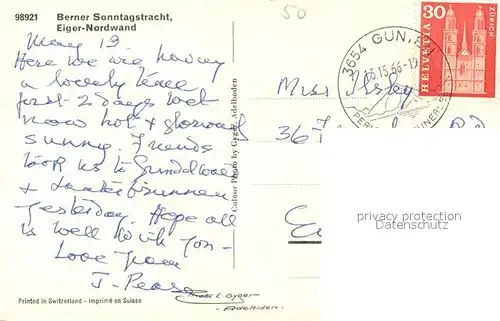 98921 Berner Sonntagstracht,
Eiger-Nordwand
50
May 19.
Here we are having
a lovely time
first 2 days wet
now hot & gloriously
sunny. Friends
took us to Grindelwald
& Lauterbrunnen
yesterday. Hope all
is well with you –
Love from
J. Pease
Printed in Switzerland - Imprimé en Suisse
Colour Photo by Gyger, Adelboden
Gyger
- Adelboden -
3654 GUN
15.66-1
HELVETIA
30
ZÜRICH
Miss
36
privacy protection
Datenschutz